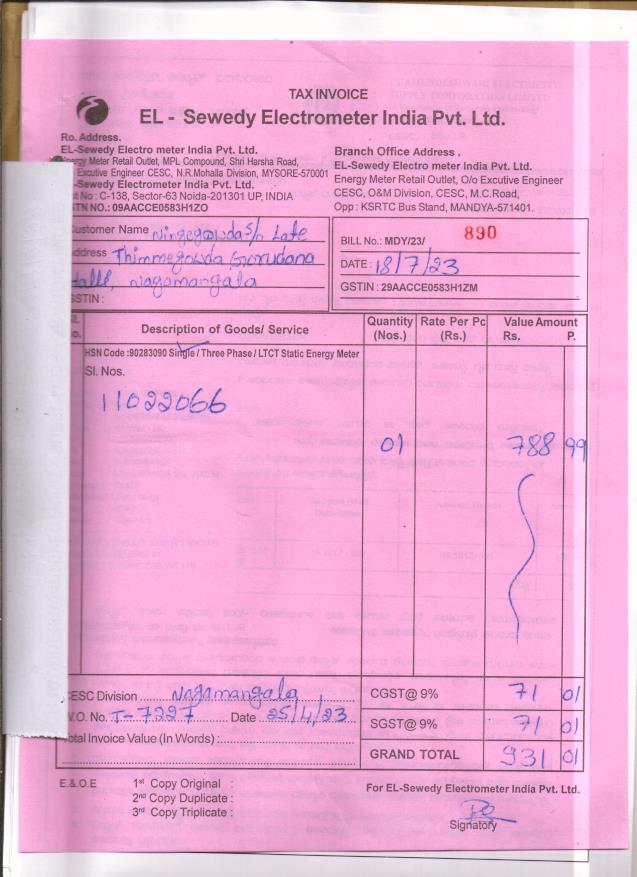 TAX INVOICE
EL - Sewedy Electrometer India Pvt. Ltd.
Ro. Address.
EL-Sewedy Electro meter India Pvt. Ltd.
Energy Meter Retail Outlet, MPL Compound, Shri Harsha Road,
Excutive Engineer CESC, N.R.Mohalla Division, MYSORE-570001
-Sewedy Electrometer India Pvt. Ltd.
No : C-138, Sector-63 Noida-201301 UP, INDIA
GSTN NO.: 09AACCE0583H1ZO
Branch Office Address .
EL-Sewedy Electro meter India Pvt. Ltd.
Energy Meter Retail Outlet, O/o Excutive Engineer
CESC, O&M Division, CESC, M.C.Road,
Opp : KSRTC Bus Stand, MANDYA-571401.
Customer Name Ningegowda s/o Late
Address Thimmegowda, Gorudana
Halli, Nagamangala
GSTIN :
BILL No.: MDY/23/ 890
DATE : 18/7/23
GSTIN : 29AACCE0583H1ZM
SL. No. Description of Goods/ Service Quantity (Nos.) Rate Per Pc (Rs.) Value Amount Rs. P.
HSN Code :90283090 Single / Three Phase / LTCT Static Energy Meter
Sl. Nos.
11022066
01 788 99
CESC Division Nagamangala
CGST@ 9% 71 01
W.O. No. T-7227 Date 25/4/23
SGST@ 9% 71 01
Total Invoice Value (In Words) :
GRAND TOTAL 931 01
E.& O.E
1st Copy Original :
2nd Copy Duplicate :
3rd Copy Triplicate :
For EL-Sewedy Electrometer India Pvt. Ltd.
Signatory